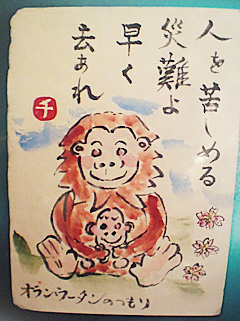 人を苦しめる
災難よ
早く
去あれ
千
オランウータンのつもり